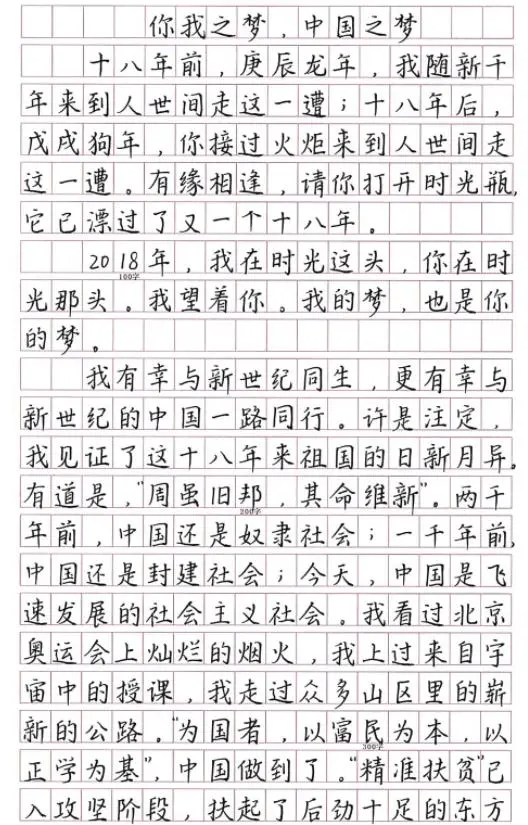 你我之梦，中国之梦
十八年前，庚辰龙年，我随新千
年来到人世间走这一遭；十八年后，
戊戌狗年，你接过火炬来到人世间走
这一遭。有缘相逢，请你打开时光瓶，
它已漂过了又一个十八年。
2018年，我在时光这头，你在时
100字
光那头。我望着你。我的梦，也是你
的梦。
我有幸与新世纪同生，更有幸与
新世纪的中国一路同行。许是注定，
我见证了这十八年来祖国的日新月异。
有道是，“周虽旧邦，其命维新”。两千
200字
年前，中国还是奴隶社会；一千年前，
中国还是封建社会；今天，中国是飞
速发展的社会主义社会。我看过北京
奥运会上灿烂的烟火，我上过来自宇
宙中的授课，我走过众多山区里的崭
新的公路。“为国者，以富民为本，以
300字
正学为基”，中国做到了。“精准扶贫”已
入攻坚阶段，扶起了后劲十足的东方